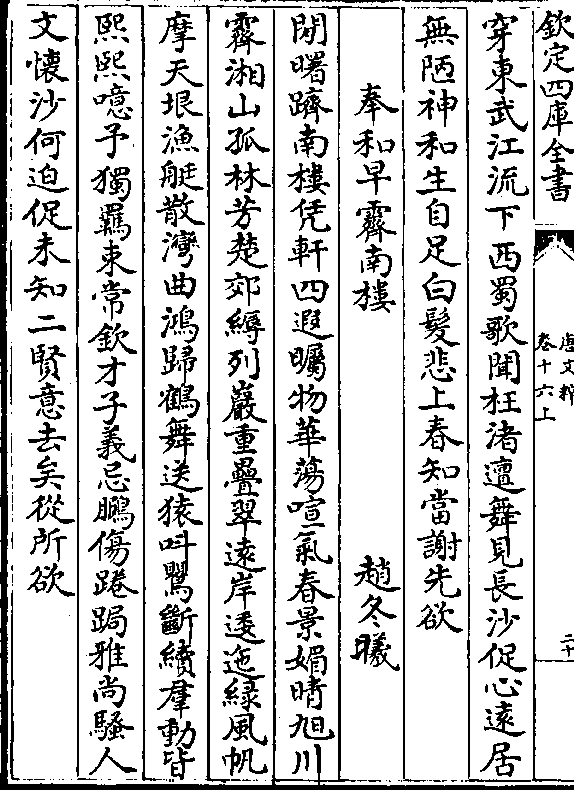 欽定四庫全書
唐文粹
卷十六上
二十
穿東武江流下西蜀歌聞枉渚邅舞見長沙促心遠居
無陋神和生自足白髮悲上春知當謝先欲
奉和早霽南樓
趙冬曦
閒曙躋南樓凭軒四遐矚物華蕩喧氣春景媚晴旭川
霽湘山孤林芳楚郊縟列巖重疊翠遠岸逶迤緑風帆
摩天垠漁艇散灣曲鴻歸鶴舞送猿叫鸎斷續羣動皆
熙熙噫予獨羈束常欽才子義忌鵩傷踡跼雅尚騷人
文懷沙何迫促未知二賢意去矣從所欲